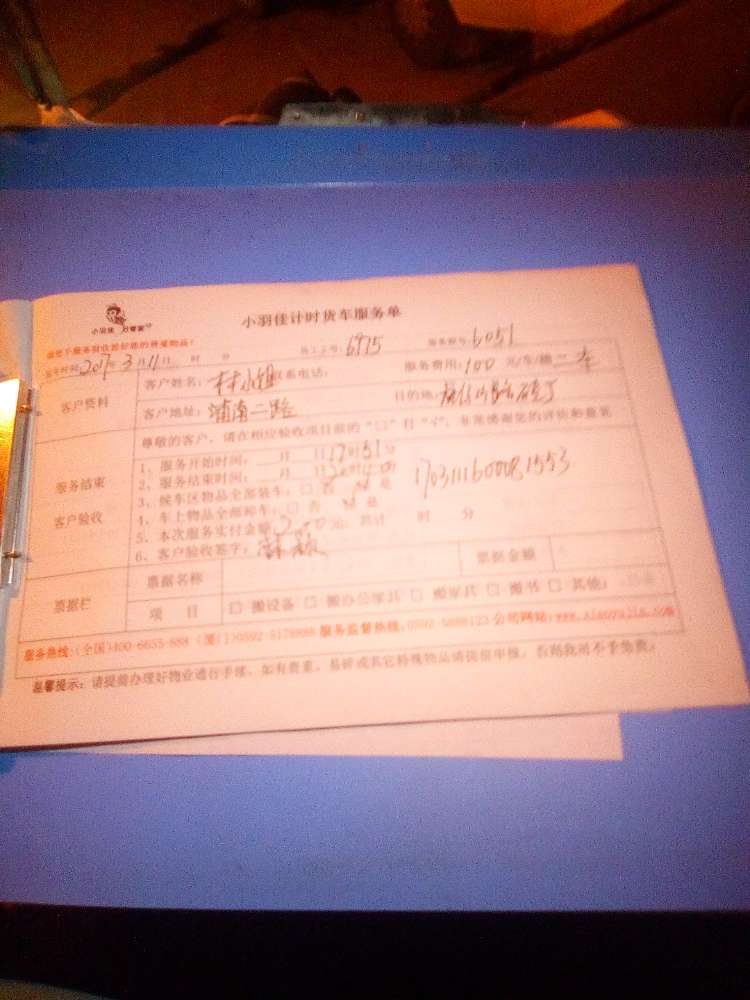 小羽佳 好管家
小羽佳计时货车服务单
员工工号：6975 服务账号：6051
时间：2017年3月11日 时 分
客户资料
客户姓名： 小姐 联系电话： 服务费用：100 元/车/趟 二车
客户地址：莆南二路 目的地：
尊敬的客户，请在相应验收项目前的“□”打“√”，非常感谢您的评价和意见
服务结束
客户验收
1、服务开始时间： 月 日17时51分
2、服务结束时间： 月 日
3、候车区物品全部装车：□否 是
4、车上物品全部卸车：□否 是
5、本次服务实付金额 元，共计 时 分
6、客户验收签字：
1703111600081553
票据栏
票据名称 票据金额
项 目 □ 搬设备 □ 搬办公家具 □ 搬家具 □ 搬书 □ 其他：
服务热线：(全国)400-6655-888 (厦门)0592-5178888 服务监督热线：0592-5888123 公司网站：www.xiaoyujia.com
温馨提示：请提前办理好物业通行手续，如有贵重、易碎或其它特殊物品请提前申报，否则我司不予负责！